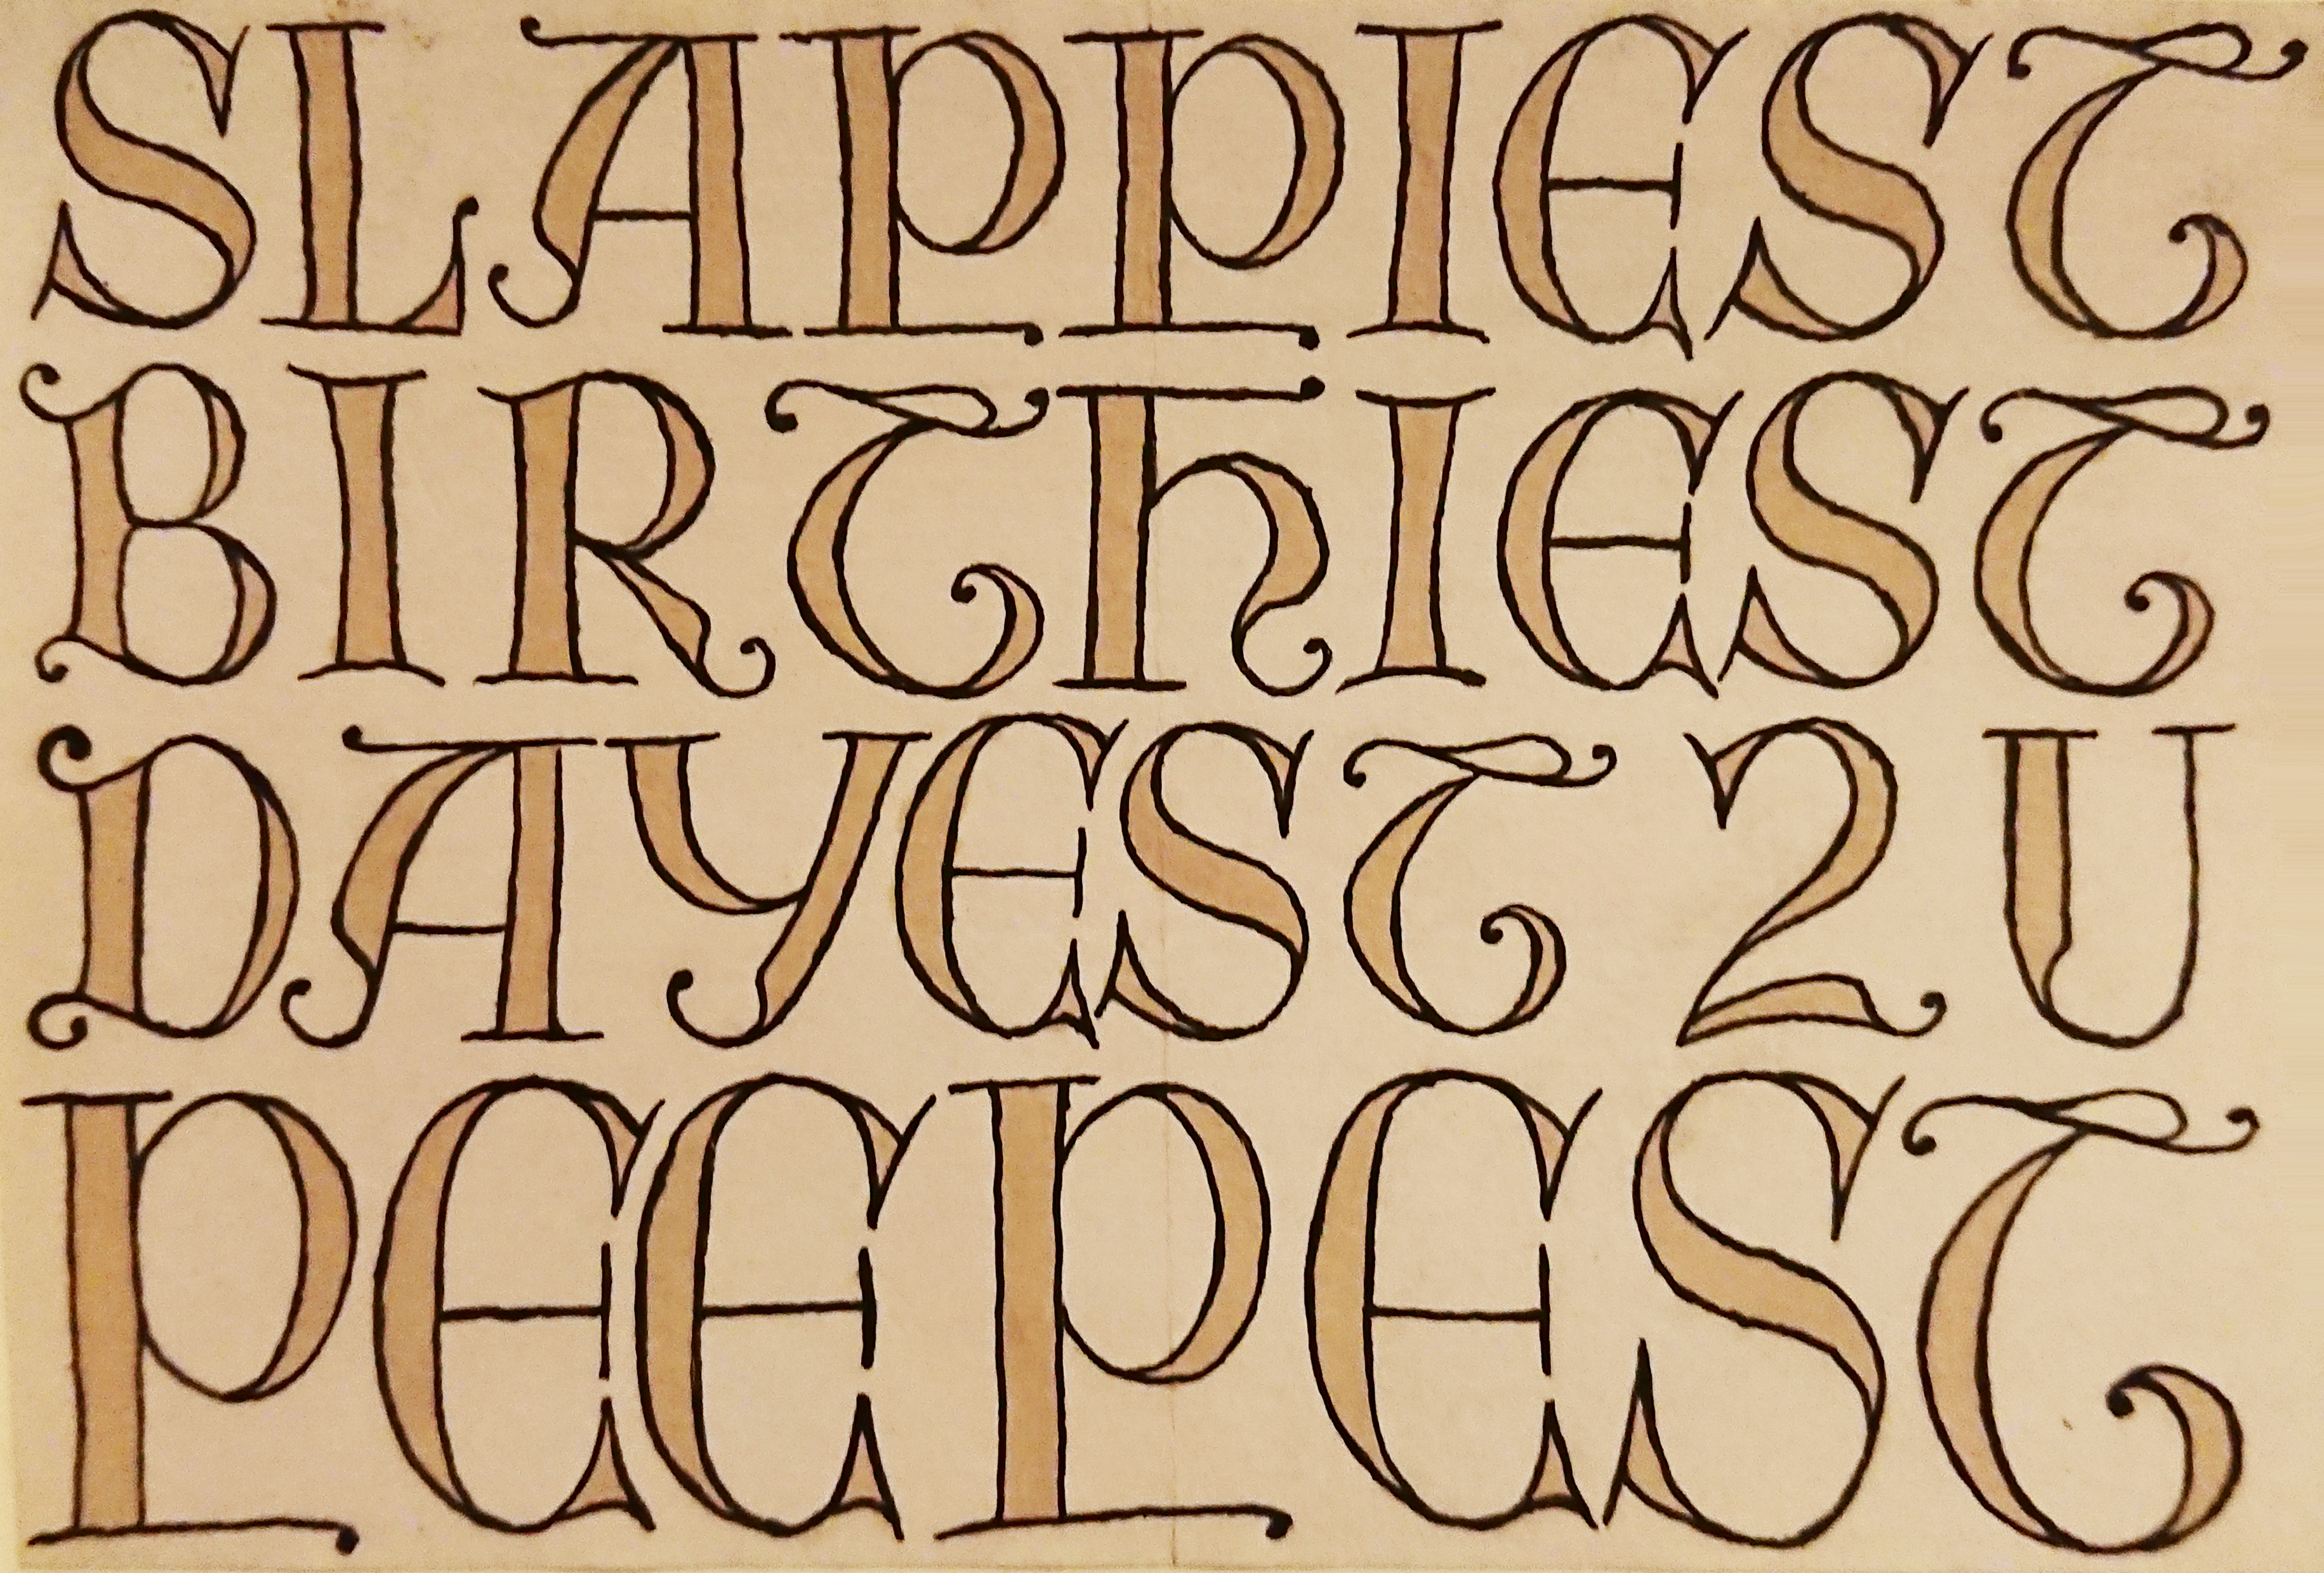 SLAPPIEST
BIRTHIEST
DAYEST 2 U
PEEPEST